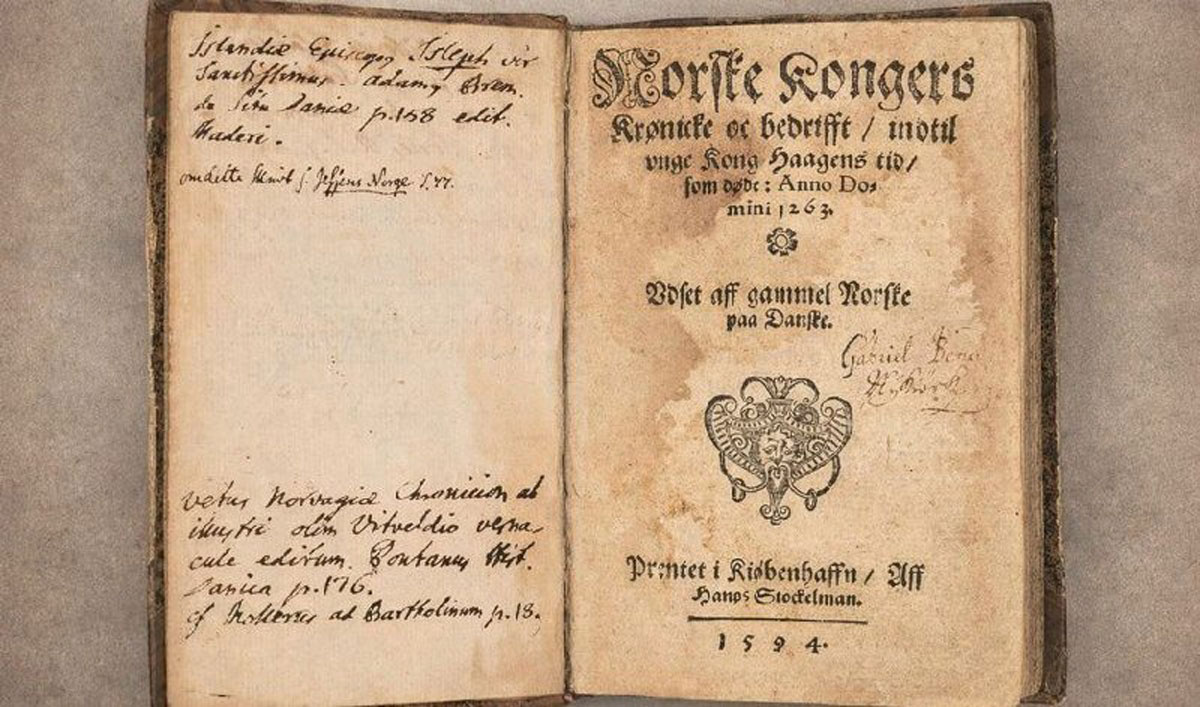 Islandiæ Episcopus Isleph vir
Sanctissimus. Adamus Brem.
de Situ Daniæ p. 158 edit.
Maderi.
Norges S. 77.
Vetus Norvagiæ Chronicion ab
illustri olim Vitveldio verna-
cule editum. Pontanus Hist.
Danica p. 176.
cf Mollerus ad Bartholinum p. 18.
Norske Kongers
Krønicke oc bedrifft / indtil
vnge Kong Haagens tid /
som døde: Anno Do-
mini 1263.
Vdset aff gammel Norske
paa Danske.
Gabriel
Prentet i Kiøbenhaffn / Aff
Hans Stockelman.
1594.